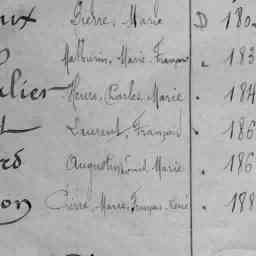 ux Pierre, Marie D 180
Mathurin, Marie, François „ 183
alier Henri, Charles, Marie „ 184
t Laurent, François „ 186
rd Augustin, Marie „ 186
on Pierre, Marie, François, René „ 188